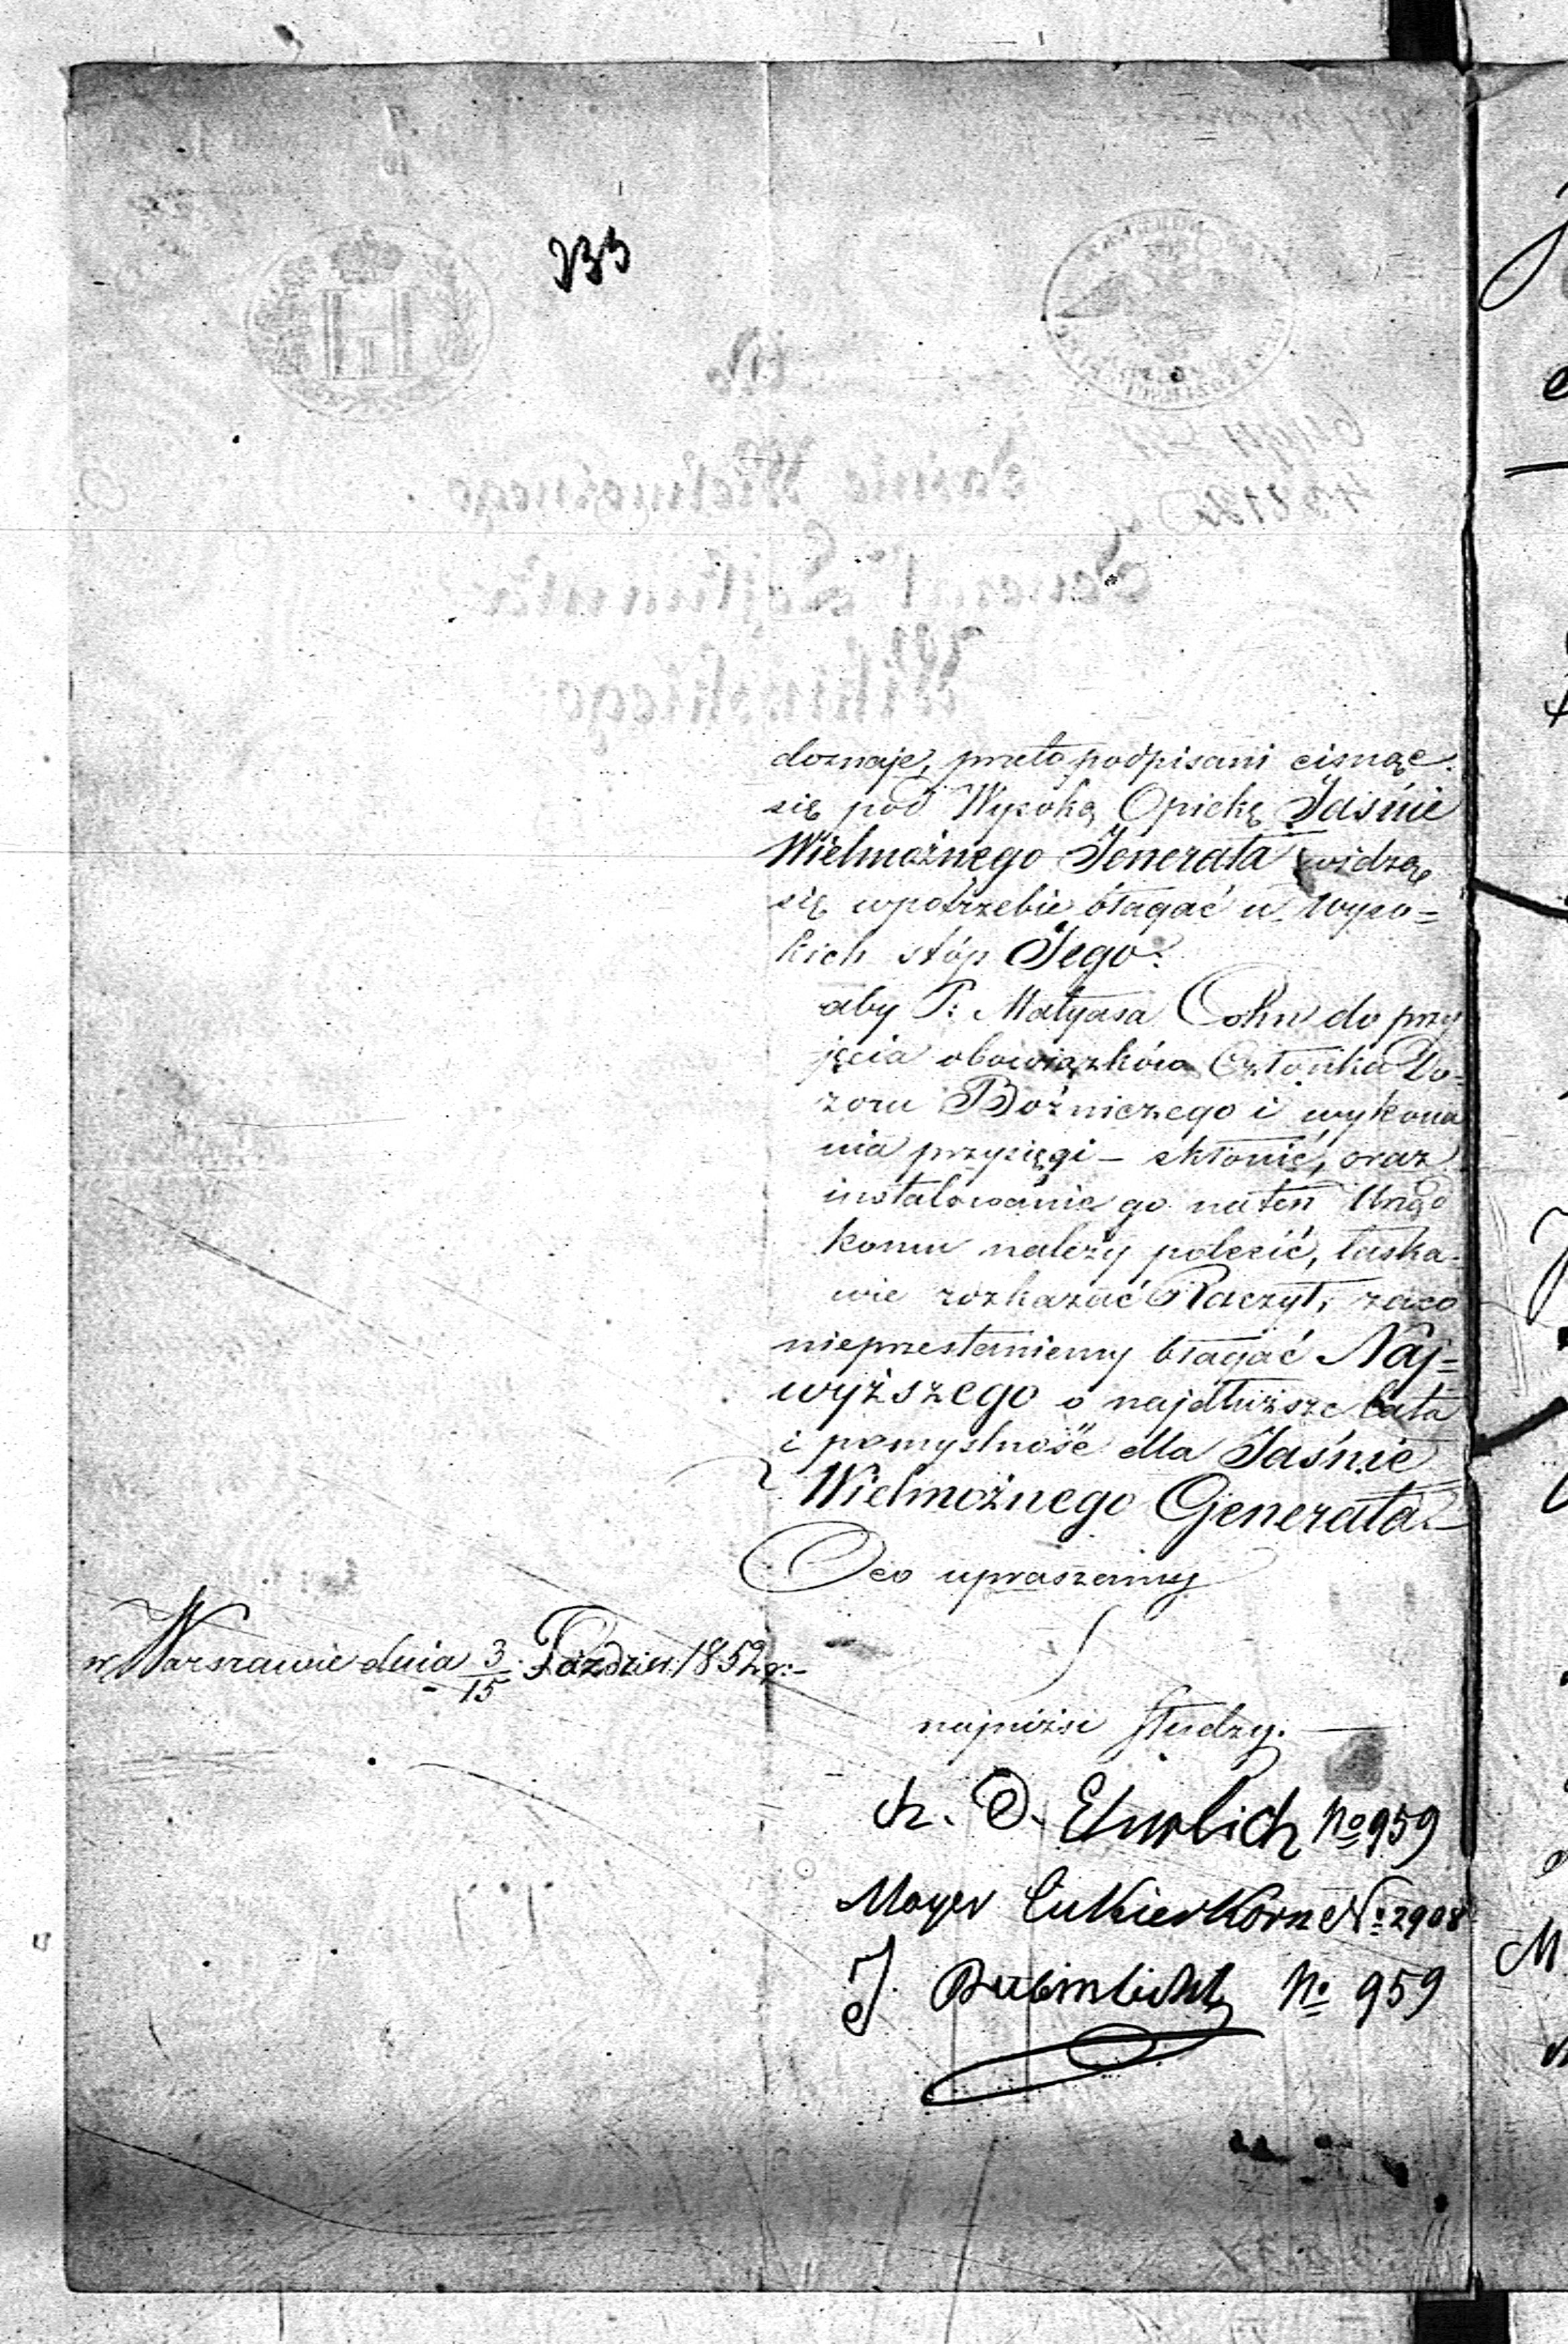 233
doznaje, przeto podpisani cisnąc
się pod Wysoką Opiekę Jaśnie
Wielmożnego Jenerała widzą
się wpotrzebie błagać u wyso=
kich stóp Jego:
aby P: Matyasa Cohn do przy
jęcia obowiązków Członka Do-
zoru Bożniczego i wykona
nia przysięgi – skłonić, oraz
instalowanie go na ten Urząd
komu należy polecić, łaska-
wie rozkazać Raczył, zaco
nieprzestaniemy błagać Naj=
wyższego o najdłuższe lata
i pomyślność dla Jaśnie
Wielmożnego Generała.
Oco upraszamy
w Warszawie dnia 3/15 Paździer: 1852 r:
najniżsi słudzy.
Ch. D. Ehrlich No 959
Mayer Cukierkorn No 2908
J. No 959